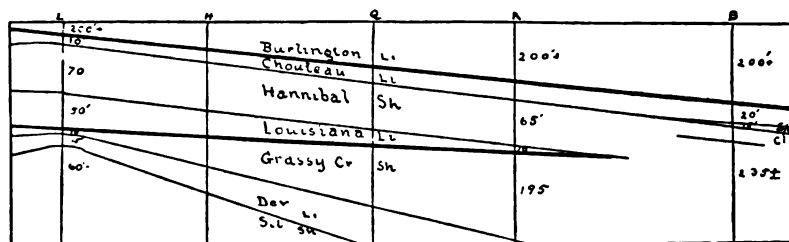 L H Q A B
200'±
Burlington Li.
200'±
200±
10
Chouteau Li
70
Hannibal Sh
65'
20'
50'
Louisiana Li
10
10
Cl
5
Grassy Cr Sh
60'
195
235±
Dev Li.
S.i Sh